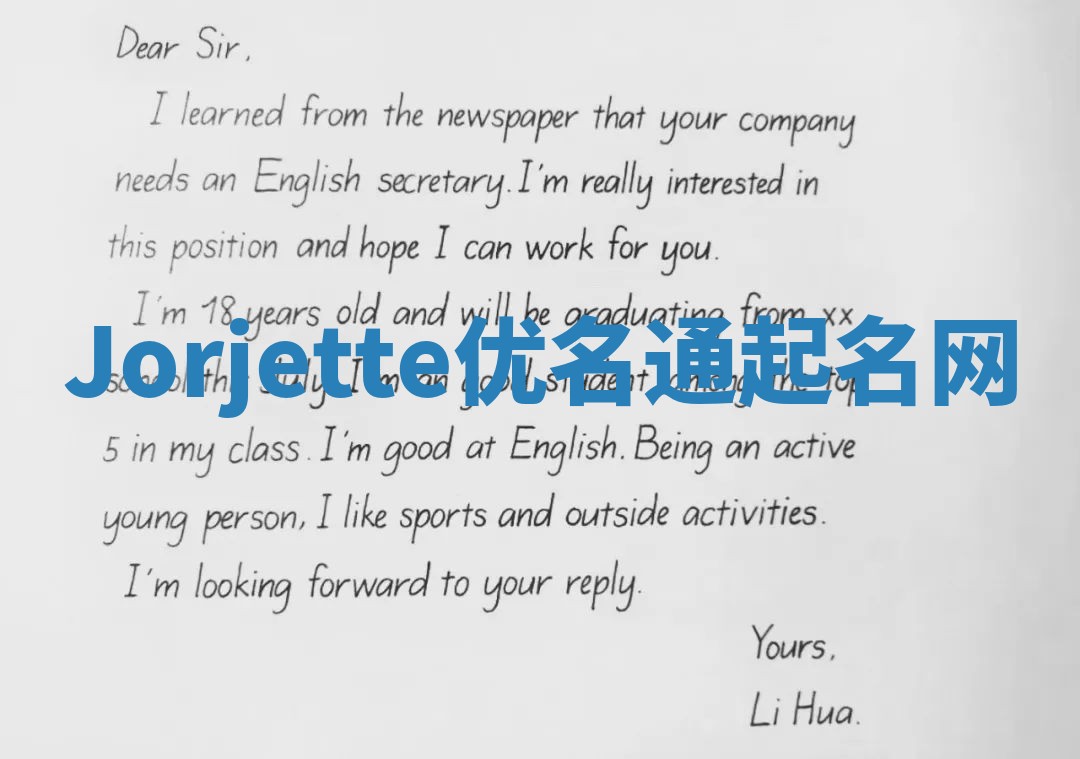 Dear Sir,
I learned from the newspaper that your company
needs an English secretary. I'm really interested in
this position and hope I can work for you.
I'm 18 years old and will be graduating from xx
Jorjette优名通起名网
school this July. I'm an good student among the top
5 in my class. I'm good at English. Being an active
young person, I like sports and outside activities.
I'm looking forward to your reply.
Yours,
Li Hua.